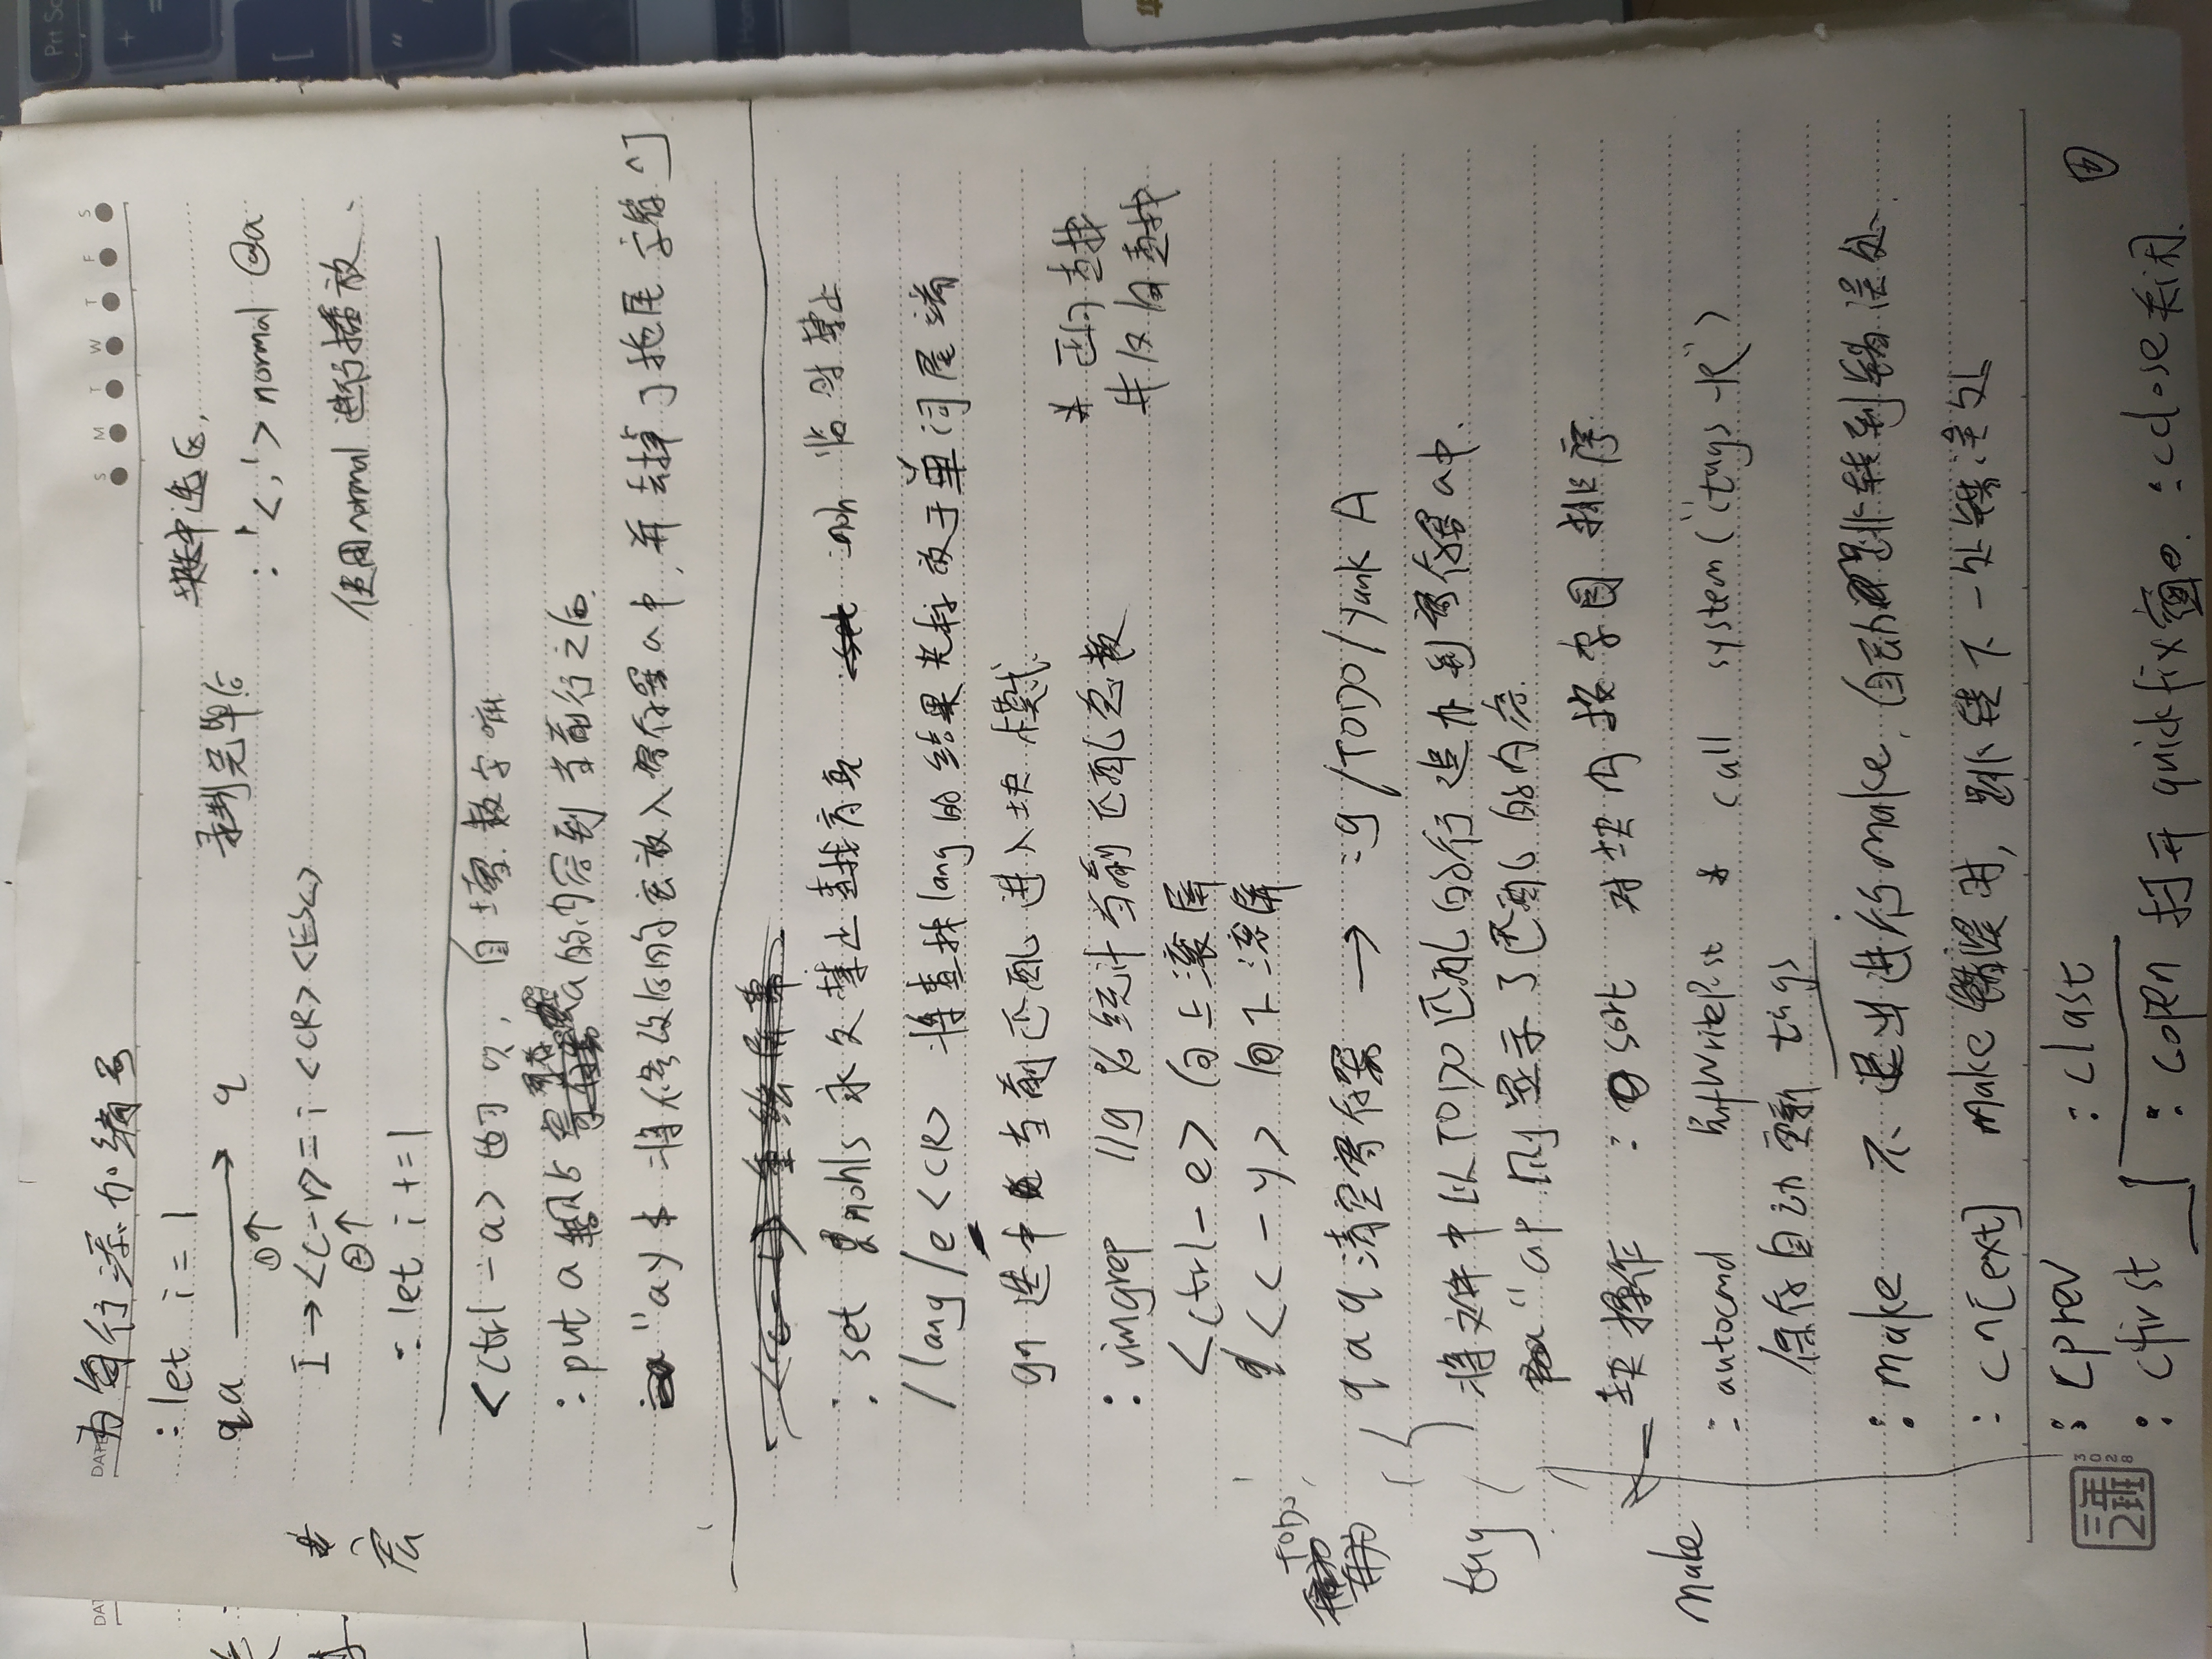 DATE
S M T W T F S
为每行添加编号
:let i=1
qa → q 录制完毕后 块中选区,
:'<,'>normal @a
I → <C-r>=i<CR><ESC>
① ②
使用normal进行播放、
:let i+=1
宏
<ctrl-a> 自增数字
:put a 将 寄存器a的内容到当前行之后.
"ay$ 将修改后的宏放入寄存器a中,并去掉了拖尾字符^J
:set nohls 永久禁止查找高亮 :noh 临时禁止
/lang/e<CR> 将查找lang的结果光标放于单词尾端
gn 选中当前匹配进入块模式.
* 正向查找
# 反向查找
:vimgrep //g % 统计当前匹配总数
<ctrl-e> 向上滚屏
<c-y> 向下滚屏
TODO
qaq 清空寄存器 → :g/TODO/yank A
将文件中以TODO匹配的行追加到寄存器a中.
"ap 则显示了匹配的内容.
块操作 :sort 对块内按字母排序
tag
:autocmd BufWritePost * call system("ctags -R")
保存自动更新 tags
make
:make 不退出进行make, 自动跳转到错误处.
:cn[ext] make错误时, 跳转下一处错误处
:cprev :clast
:cfirst :copen 打开quickfix窗口. :cclose关闭.
三年2班
3028